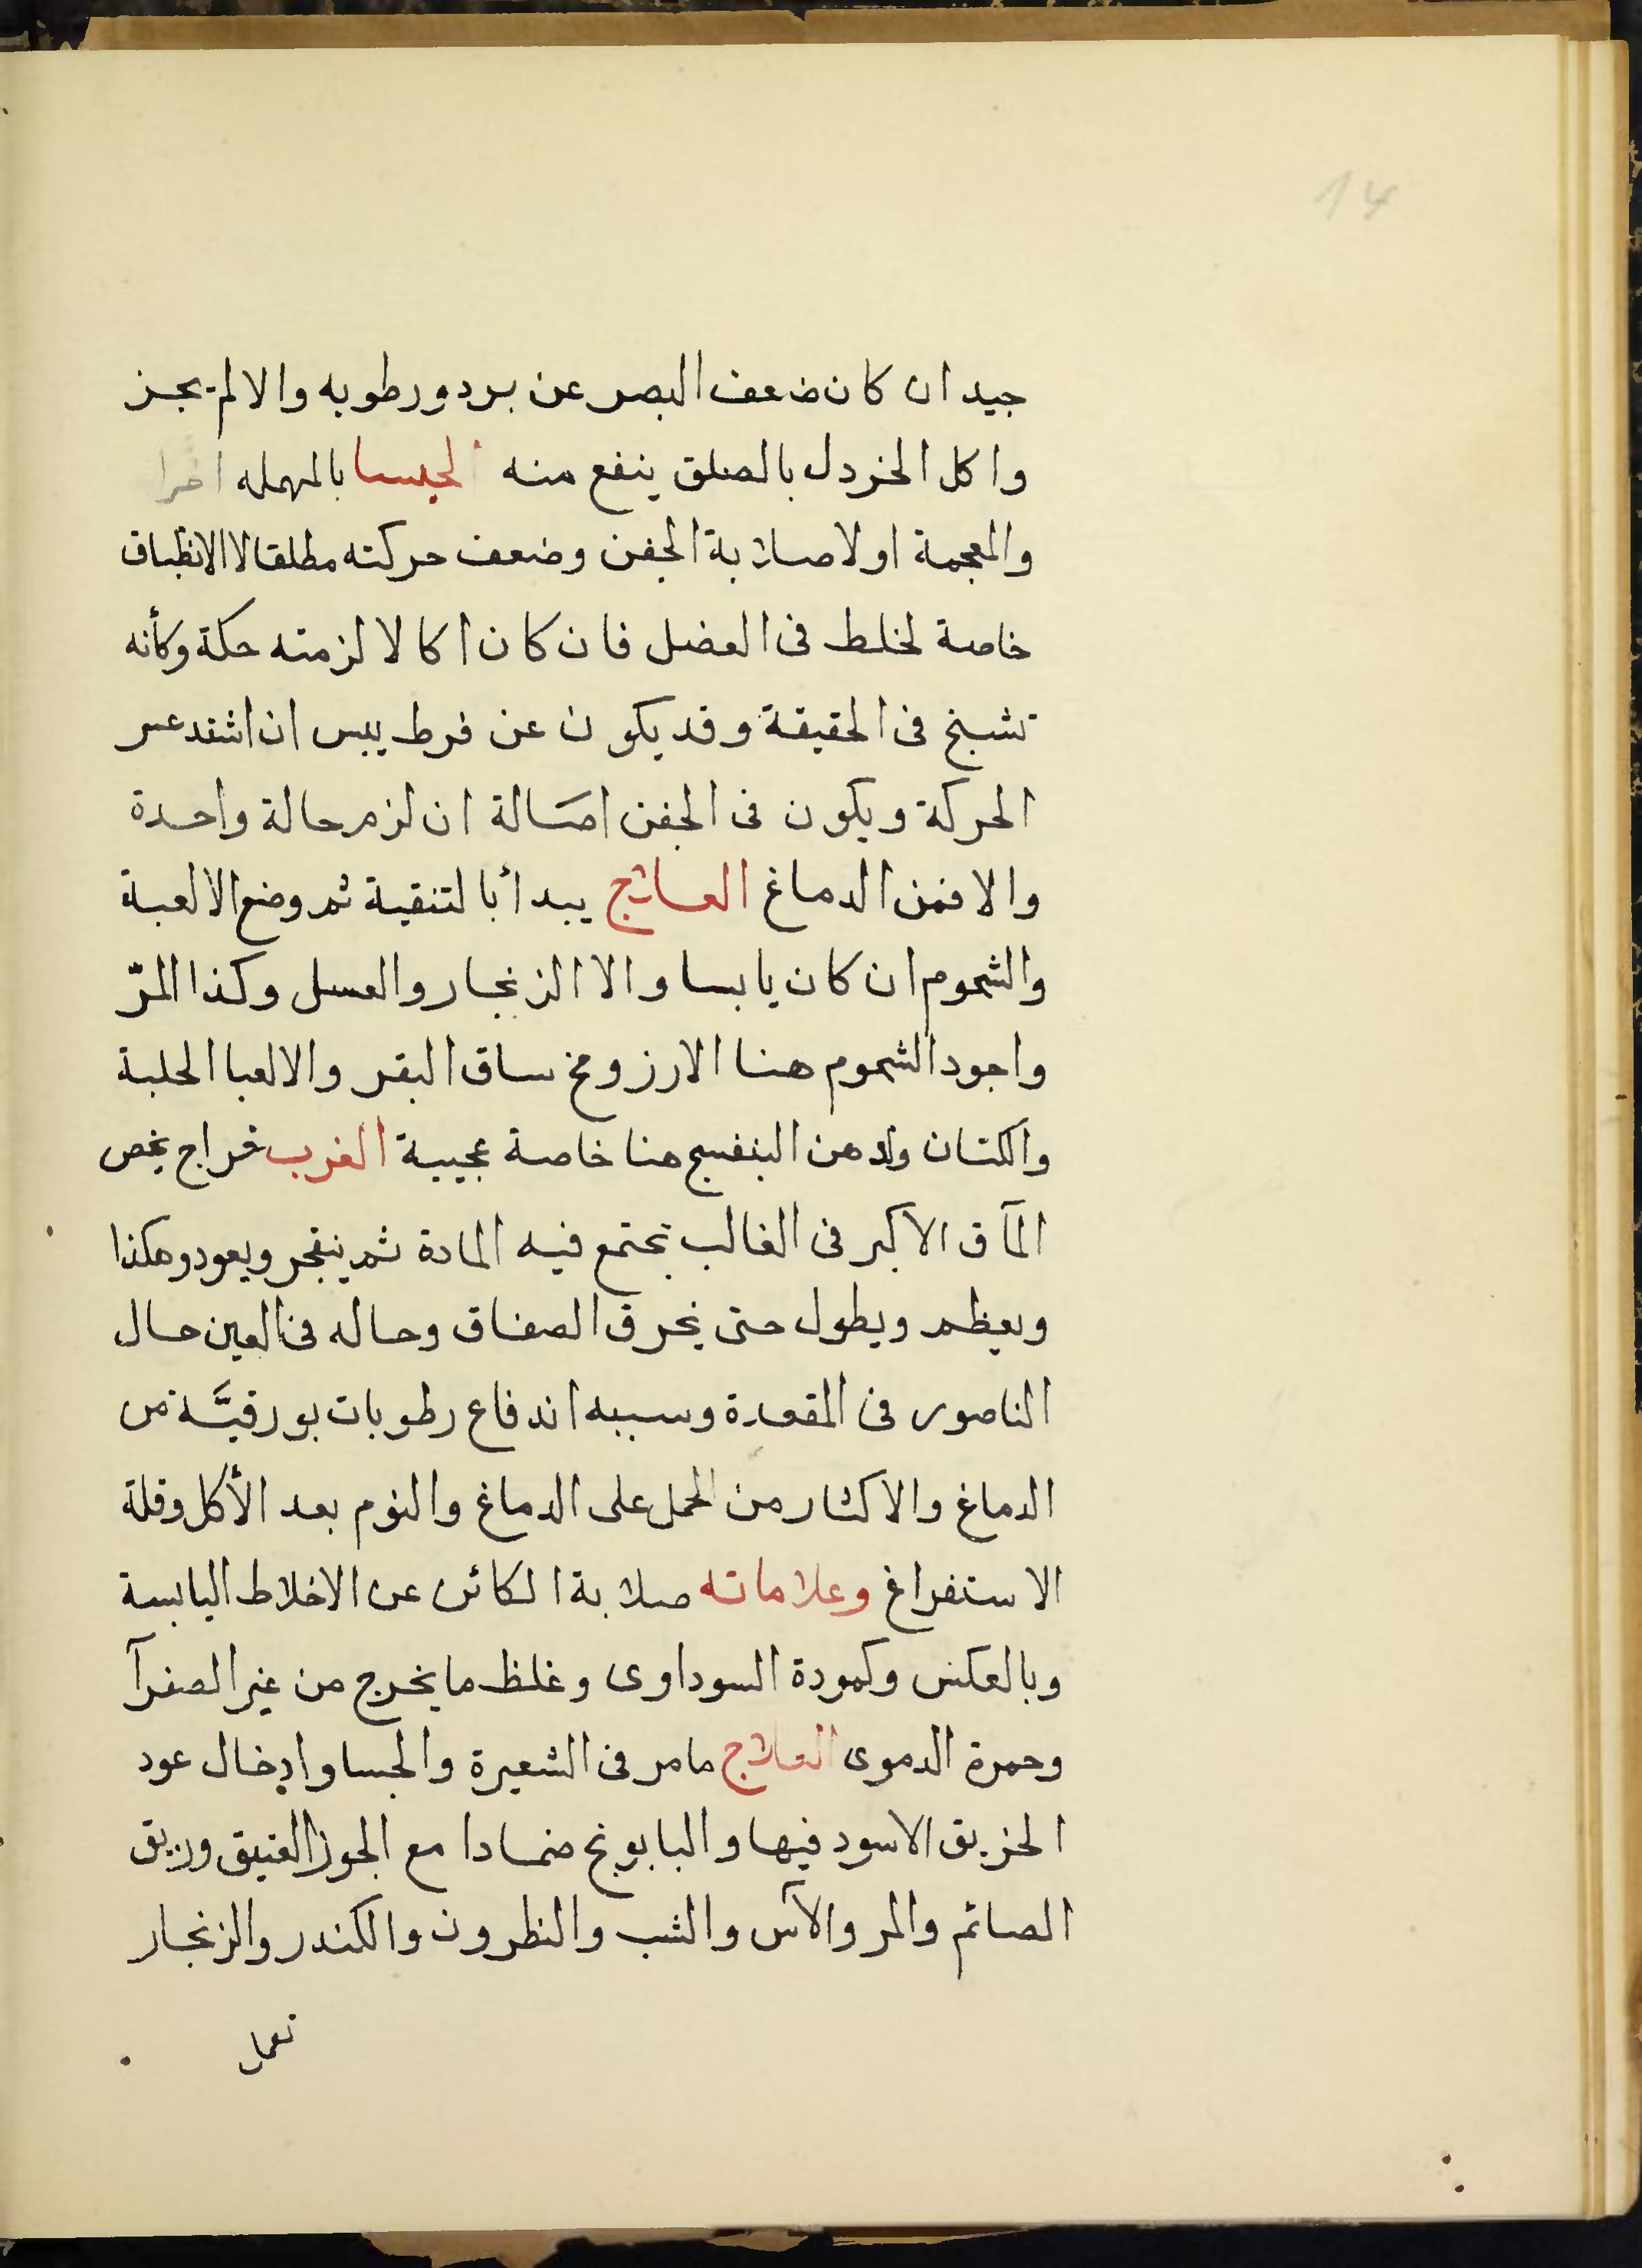 14
جيد ان كان ضعف البصر عن برد ورطوبه والا لم يجز
واكل الخردل بالصلق ينفع منه الجسا بالمهمله اخرا
والمعجمة اولا صلابة الجفن وضعف حركته مطلقا لا الانطباق
خاصة لخلط فى العضل فان كان اكالا لزمته حكة وكأنه
تشبخ فى الحقيقة وقد يكون عن فرط يبس ان اشتد عسر
الحركة ويكون فى الجفن اصَالة ان لزم حالة واحدة
والا فمن الدماغ العلاج يبدأ بالتنقية ثم وضع الالعبة
والشحوم ان كان يابسا والا الزنجار والعسل وكذا المرّ
واجود الشحوم هنا الارز ومخ ساق البقر والالعبا الحلبة
والكتان ولدهن البنفسج هنا خاصة عجيبة الغرب خراج يخص
المآق الاكبر فى الغالب تجتمع فيه المادة ثم ينفجر ويعود وهكذا
ويعظم ويطول حتى يخرق الصفاق وحاله فى العين حال
الناصور فى المقعدة وسببه اندفاع رطوبات بورقيَّة من
الدماغ والاكثار من الحمل على الدماغ والنوم بعد الأكل وقلة
الاستفراغ وعلاماته صلابة الكائن عن الاخلاط اليابسة
وبالعكس وكمودة السوداوى وغلظ ما يخرج من غير الصفرآ
وحمرة الدموى العلاج ما مر فى الشعيرة والجسا وادخال عود
الخربق الاسود فيها والبابونج ضمادا مع الجوز العتيق وريق
الصائم والمر والآس والشب والنطرون والكندر والزنجار